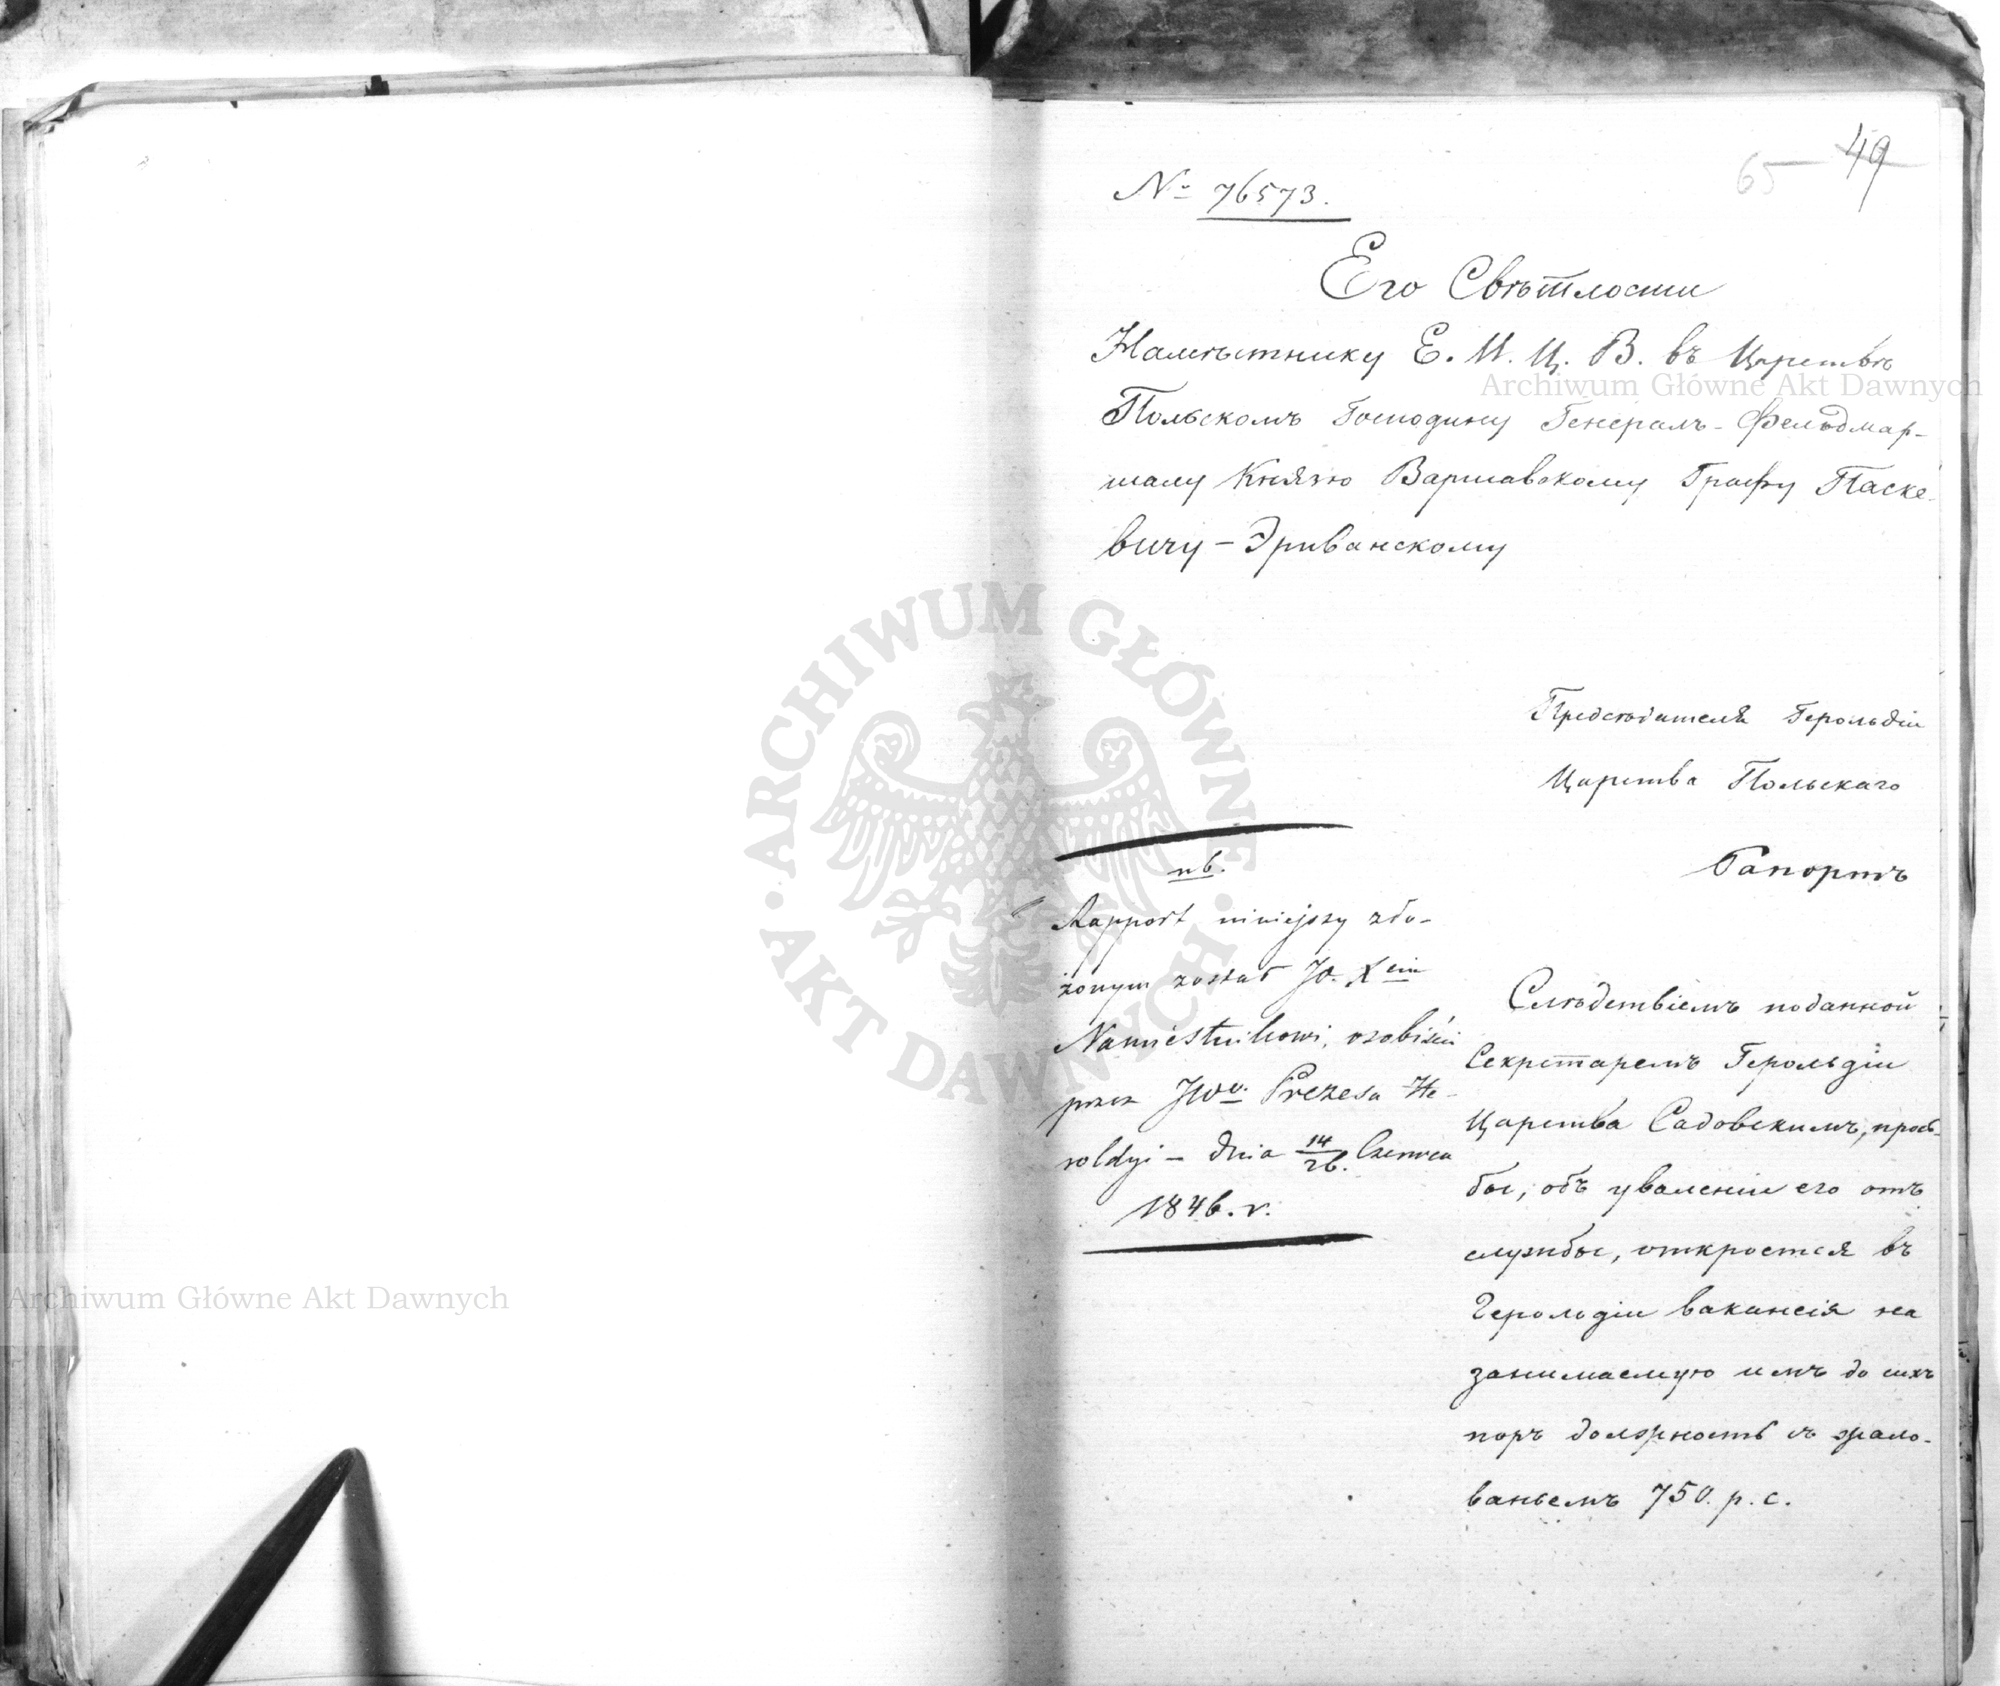 65 49
№ 76573.
Его Свѣтлости
Намѣстнику Е. И. Ц. В. въ Царствѣ
Польскомъ Господину Генералъ-Фельдмар-
шалу Князю Варшавскому Графу Паске-
вичу-Эриванскому
Предсѣдателя Герольдіи
Царства Польскаго
Рапортъ
nb.
Rapport niniejszy zło-
żonym został JO. Xciu
Namiestnikowi, osobiście
przez JWo. Prezesa He-
roldyi – dnia 14/26. Czerwca
1846. r.
Слѣдствіемъ поданной
Секретаремъ Герольдіи
Царства Садовскимъ, прозь-
бы, объ уваленіи его отъ
службы, откроется въ
Герольдіи вакансія на
занимаемую имъ до сихъ
поръ должность съ жало-
ваньемъ 750. р. с.
ARCHIWUM GŁÓWNE AKT DAWNYCH
Archiwum Główne Akt Dawnych
Archiwum Główne Akt Dawnych